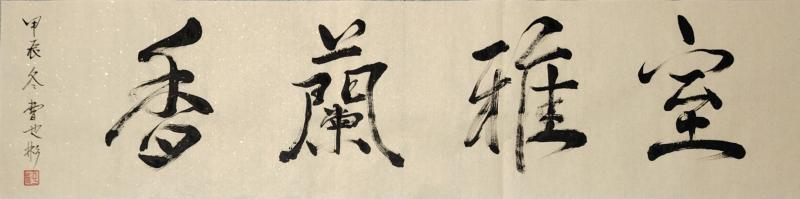 室雅蘭香
甲辰冬曹也彬